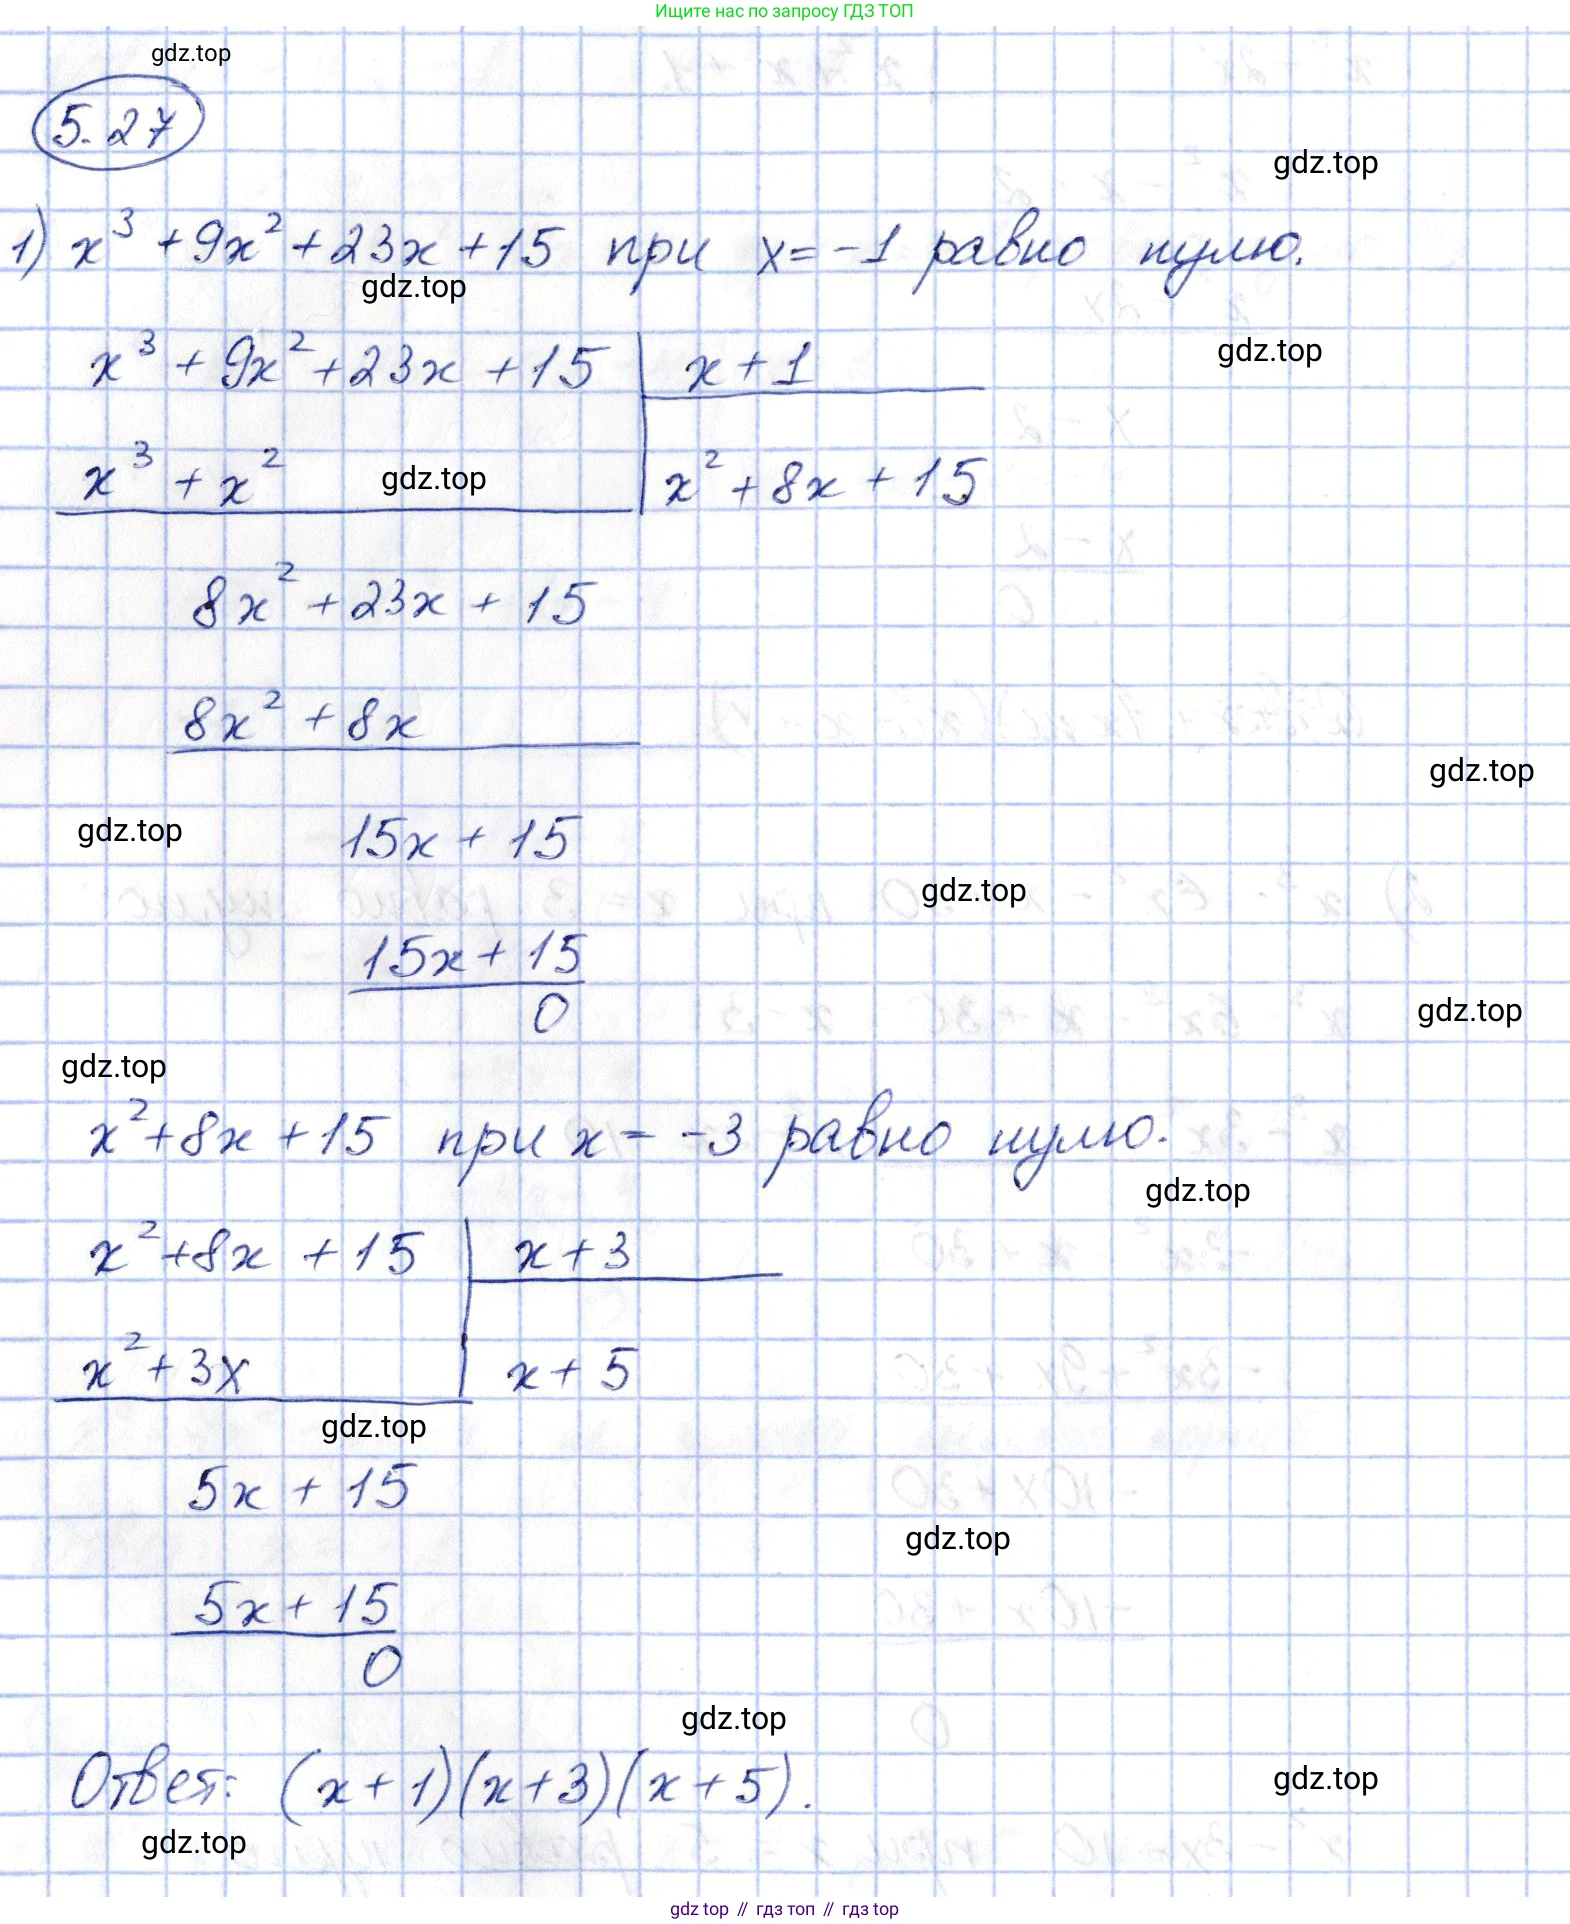 Ищите нас по запросу ГДЗ ТОП
gdz.top
5.27
gdz.top
1) x³ + 9x² + 23x + 15 при x = -1 равно нулю.
gdz.top
x³ + 9x² + 23x + 15 | x + 1
gdz.top
x³ + x² gdz.top | x² + 8x + 15
8x² + 23x + 15
8x² + 8x
gdz.top
gdz.top 15x + 15
gdz.top
15x + 15
0
gdz.top
gdz.top
x² + 8x + 15 при x = -3 равно нулю.
gdz.top
x² + 8x + 15 | x + 3
x² + 3x | x + 5
gdz.top
5x + 15
gdz.top
5x + 15
0
gdz.top
Ответ: (x + 1)(x + 3)(x + 5).
gdz.top
gdz.top
gdz top // гдз топ // гдз top